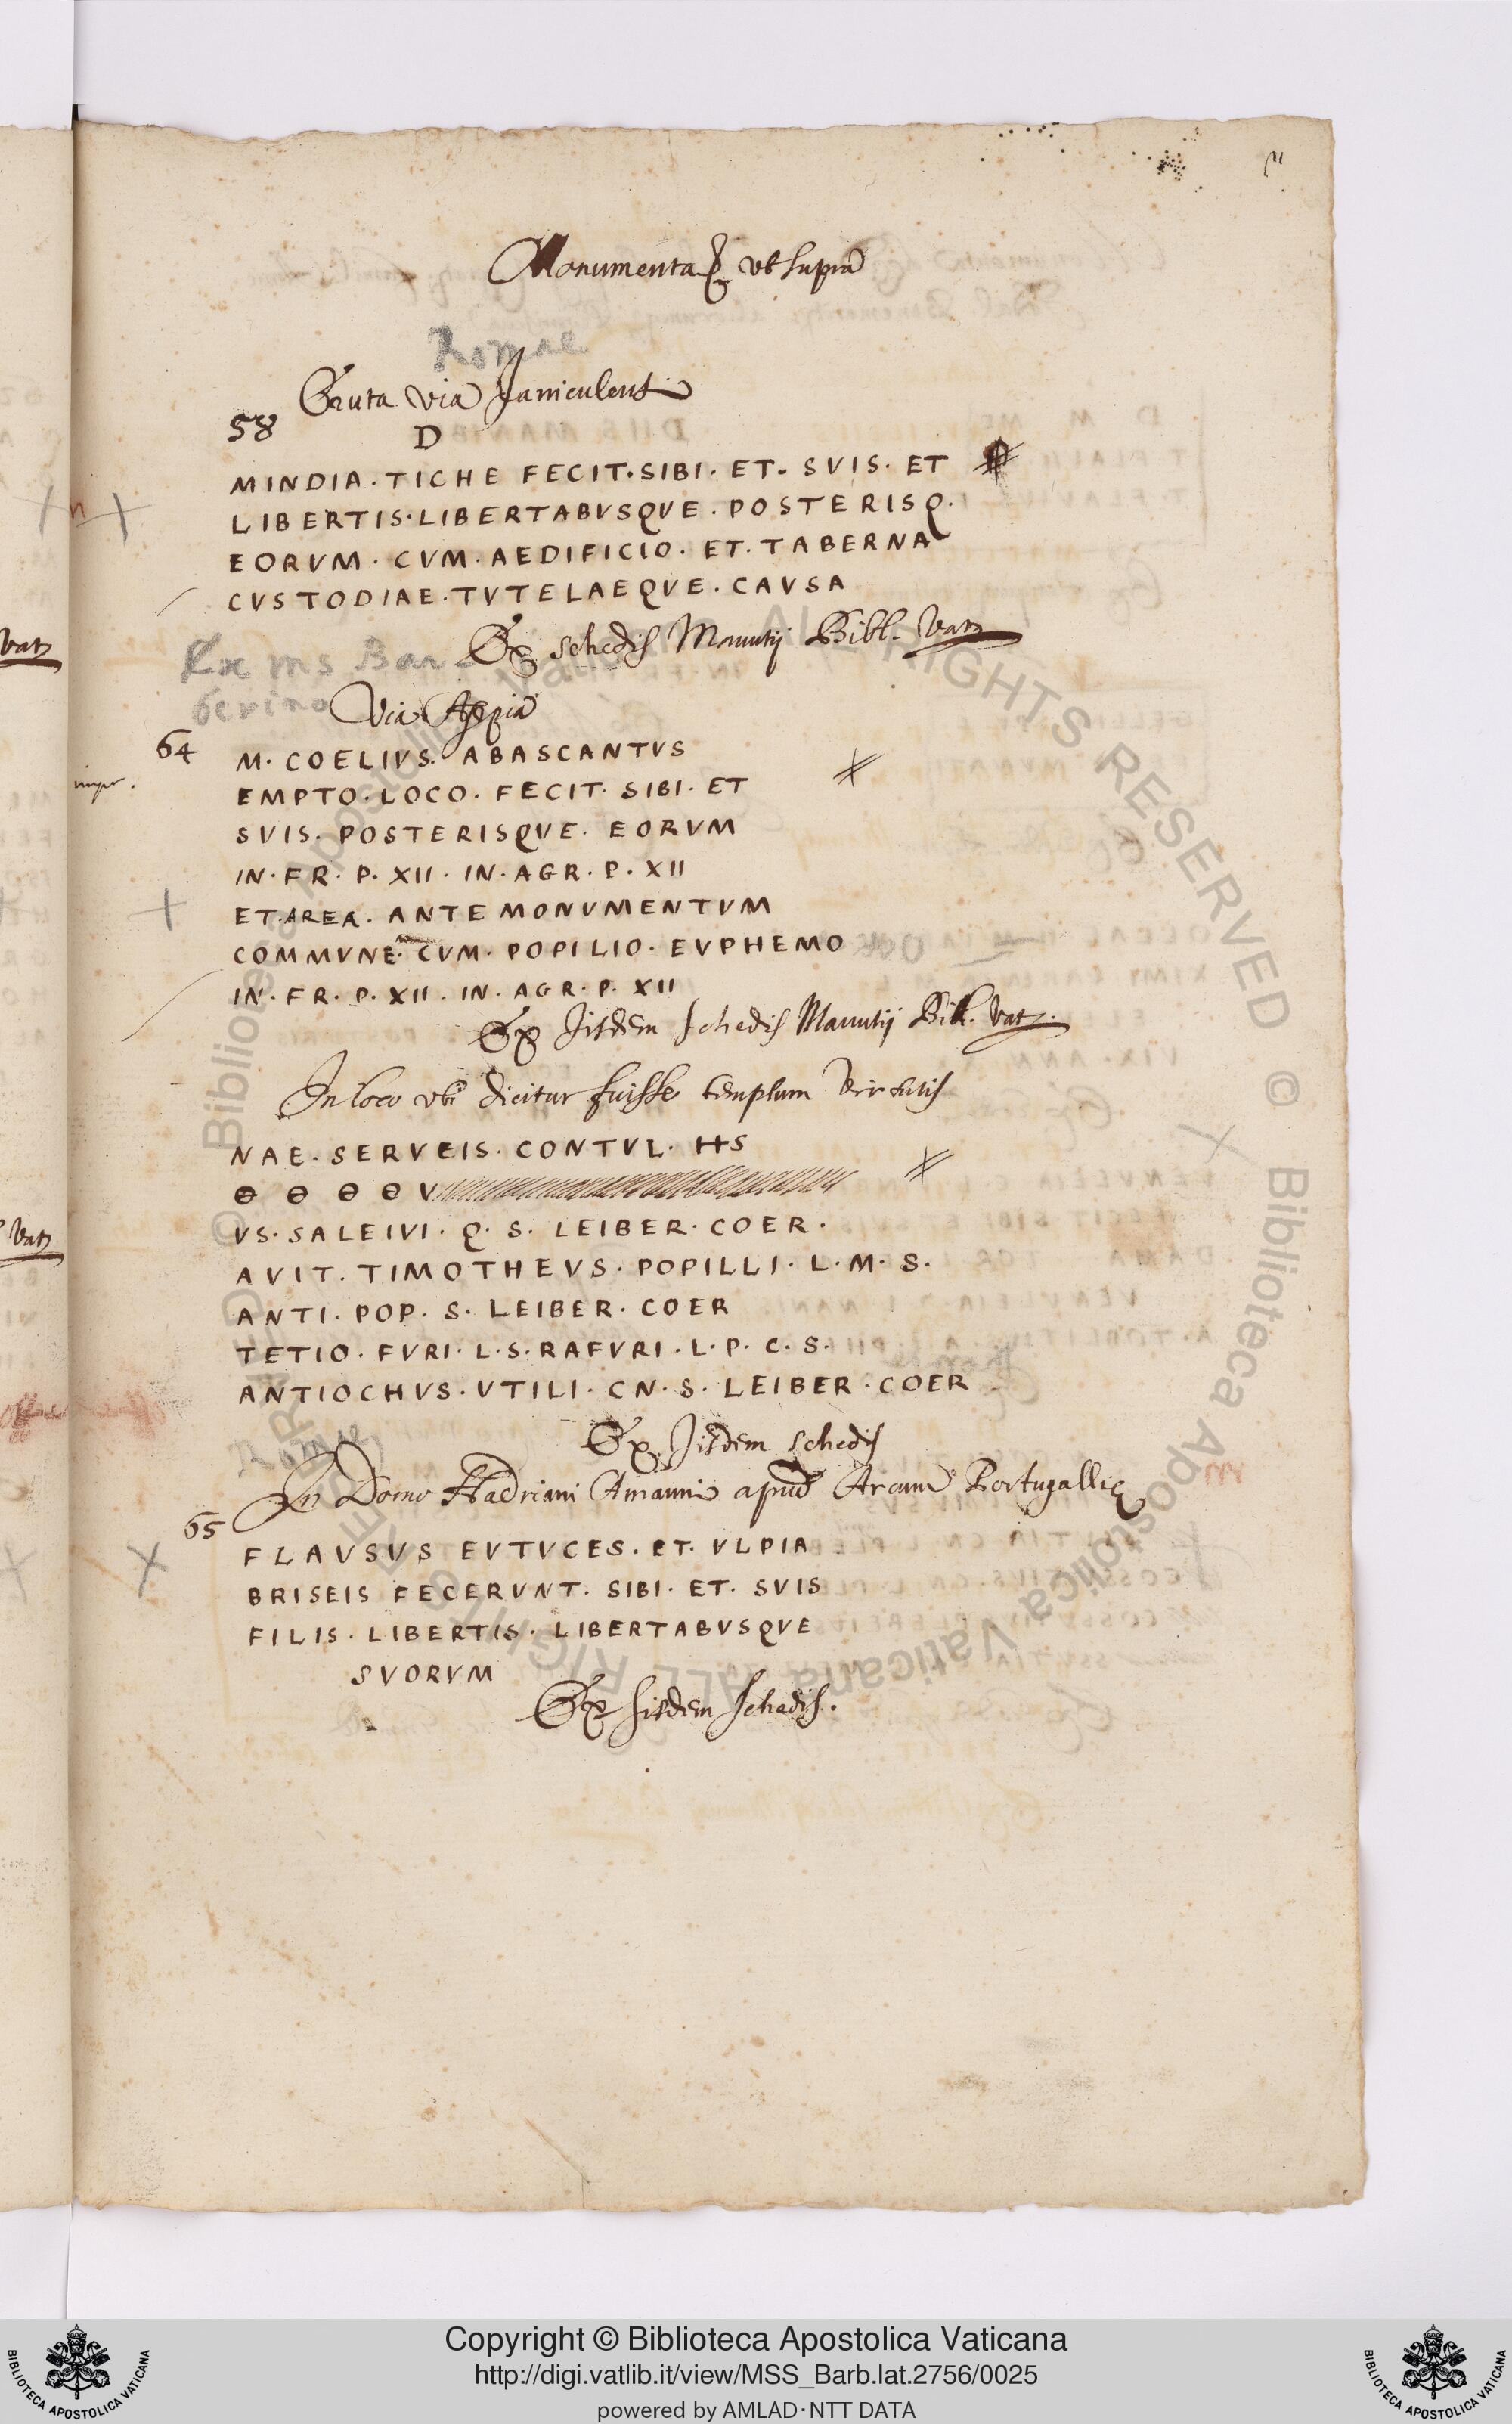 Monumenta & ut supra
Romae
Eruta via Janiculensi
58 D
MINDIA. TICHE FECIT. SIBI. ET. SVIS. ET
LIBERTIS. LIBERTABVSQVE. POSTERISQ.
EORVM. CVM. AEDIFICIO. ET. TABERNA
CVSTODIAE. TVTELAEQVE. CAVSA
Ex schedis Manutij Bibl. Vat.
Ex ms Bar-
berino
Via Appia
64
M. COELIVS. ABASCANTVS
EMPTO. LOCO. FECIT. SIBI. ET
SVIS. POSTERISQVE. EORVM
IN. FR. P. XII. IN. AGR. P. XII
ET. AREA. ANTE MONVMENTVM
COMMVNE. CVM. POPILIO. EVPHEMO
IN. FR. P. XII. IN. AGR. P. XII
Ex Jisdem schedis Manutij Bibl. Vat.
In loco ubi dicitur fuisse templum Virtutis
NAE. SERVEIS. CONTVL. HS
Ɵ Ɵ Ɵ Ɵ V
VS. SALEIVI. Q. S. LEIBER. COER.
AVIT. TIMOTHEVS. POPILLI. L. M. S.
ANTI. POP. S. LEIBER. COER
TETIO. FVRI. L. S. RAFVRI. L. P. C. S.
ANTIOCHVS. VTILI. CN. S. LEIBER. COER
Ex Jisdem schedis
Romae
In Domo Hadriani apud Arcum Portugallię
65
FLAVSVS EVTVCES. ET. VLPIA
BRISEIS FECERVNT. SIBI. ET. SVIS
FILIS. LIBERTIS. LIBERTABVSQVE
SVORVM
Ex Jisdem schedis.
© Biblioteca Apostolica Vaticana ALL RIGHTS RESERVED
Copyright © Biblioteca Apostolica Vaticana
http://digi.vatlib.it/view/MSS_Barb.lat.2756/0025
powered by AMLAD·NTT DATA
BIBLIOTECA APOSTOLICA VATICANA
BIBLIOTECA APOSTOLICA VATICANA